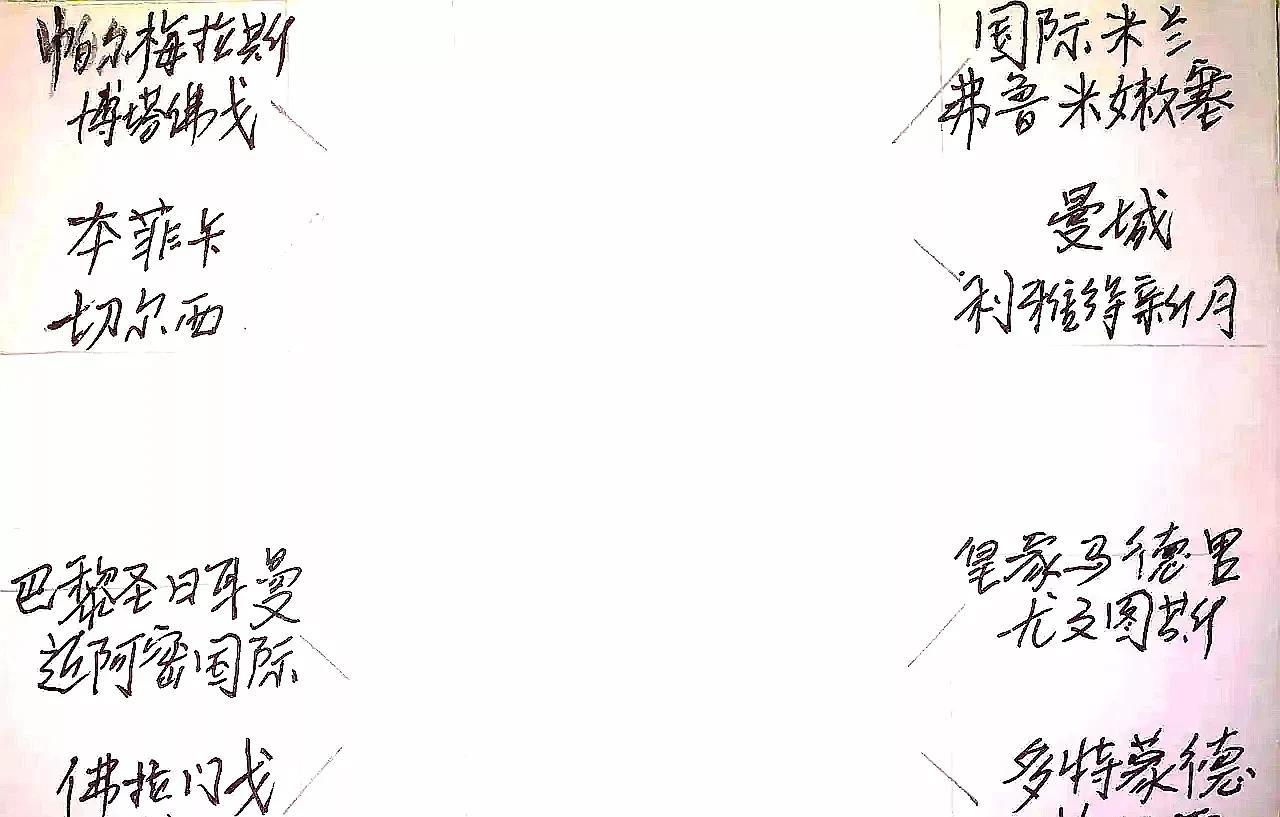 帕尔梅拉斯
博塔佛戈
本菲卡
切尔西
国际米兰
弗鲁米嫩塞
曼城
利雅得新月
巴黎圣日耳曼
迈阿密国际
佛拉门戈
皇家马德里
尤文图斯
多特蒙德